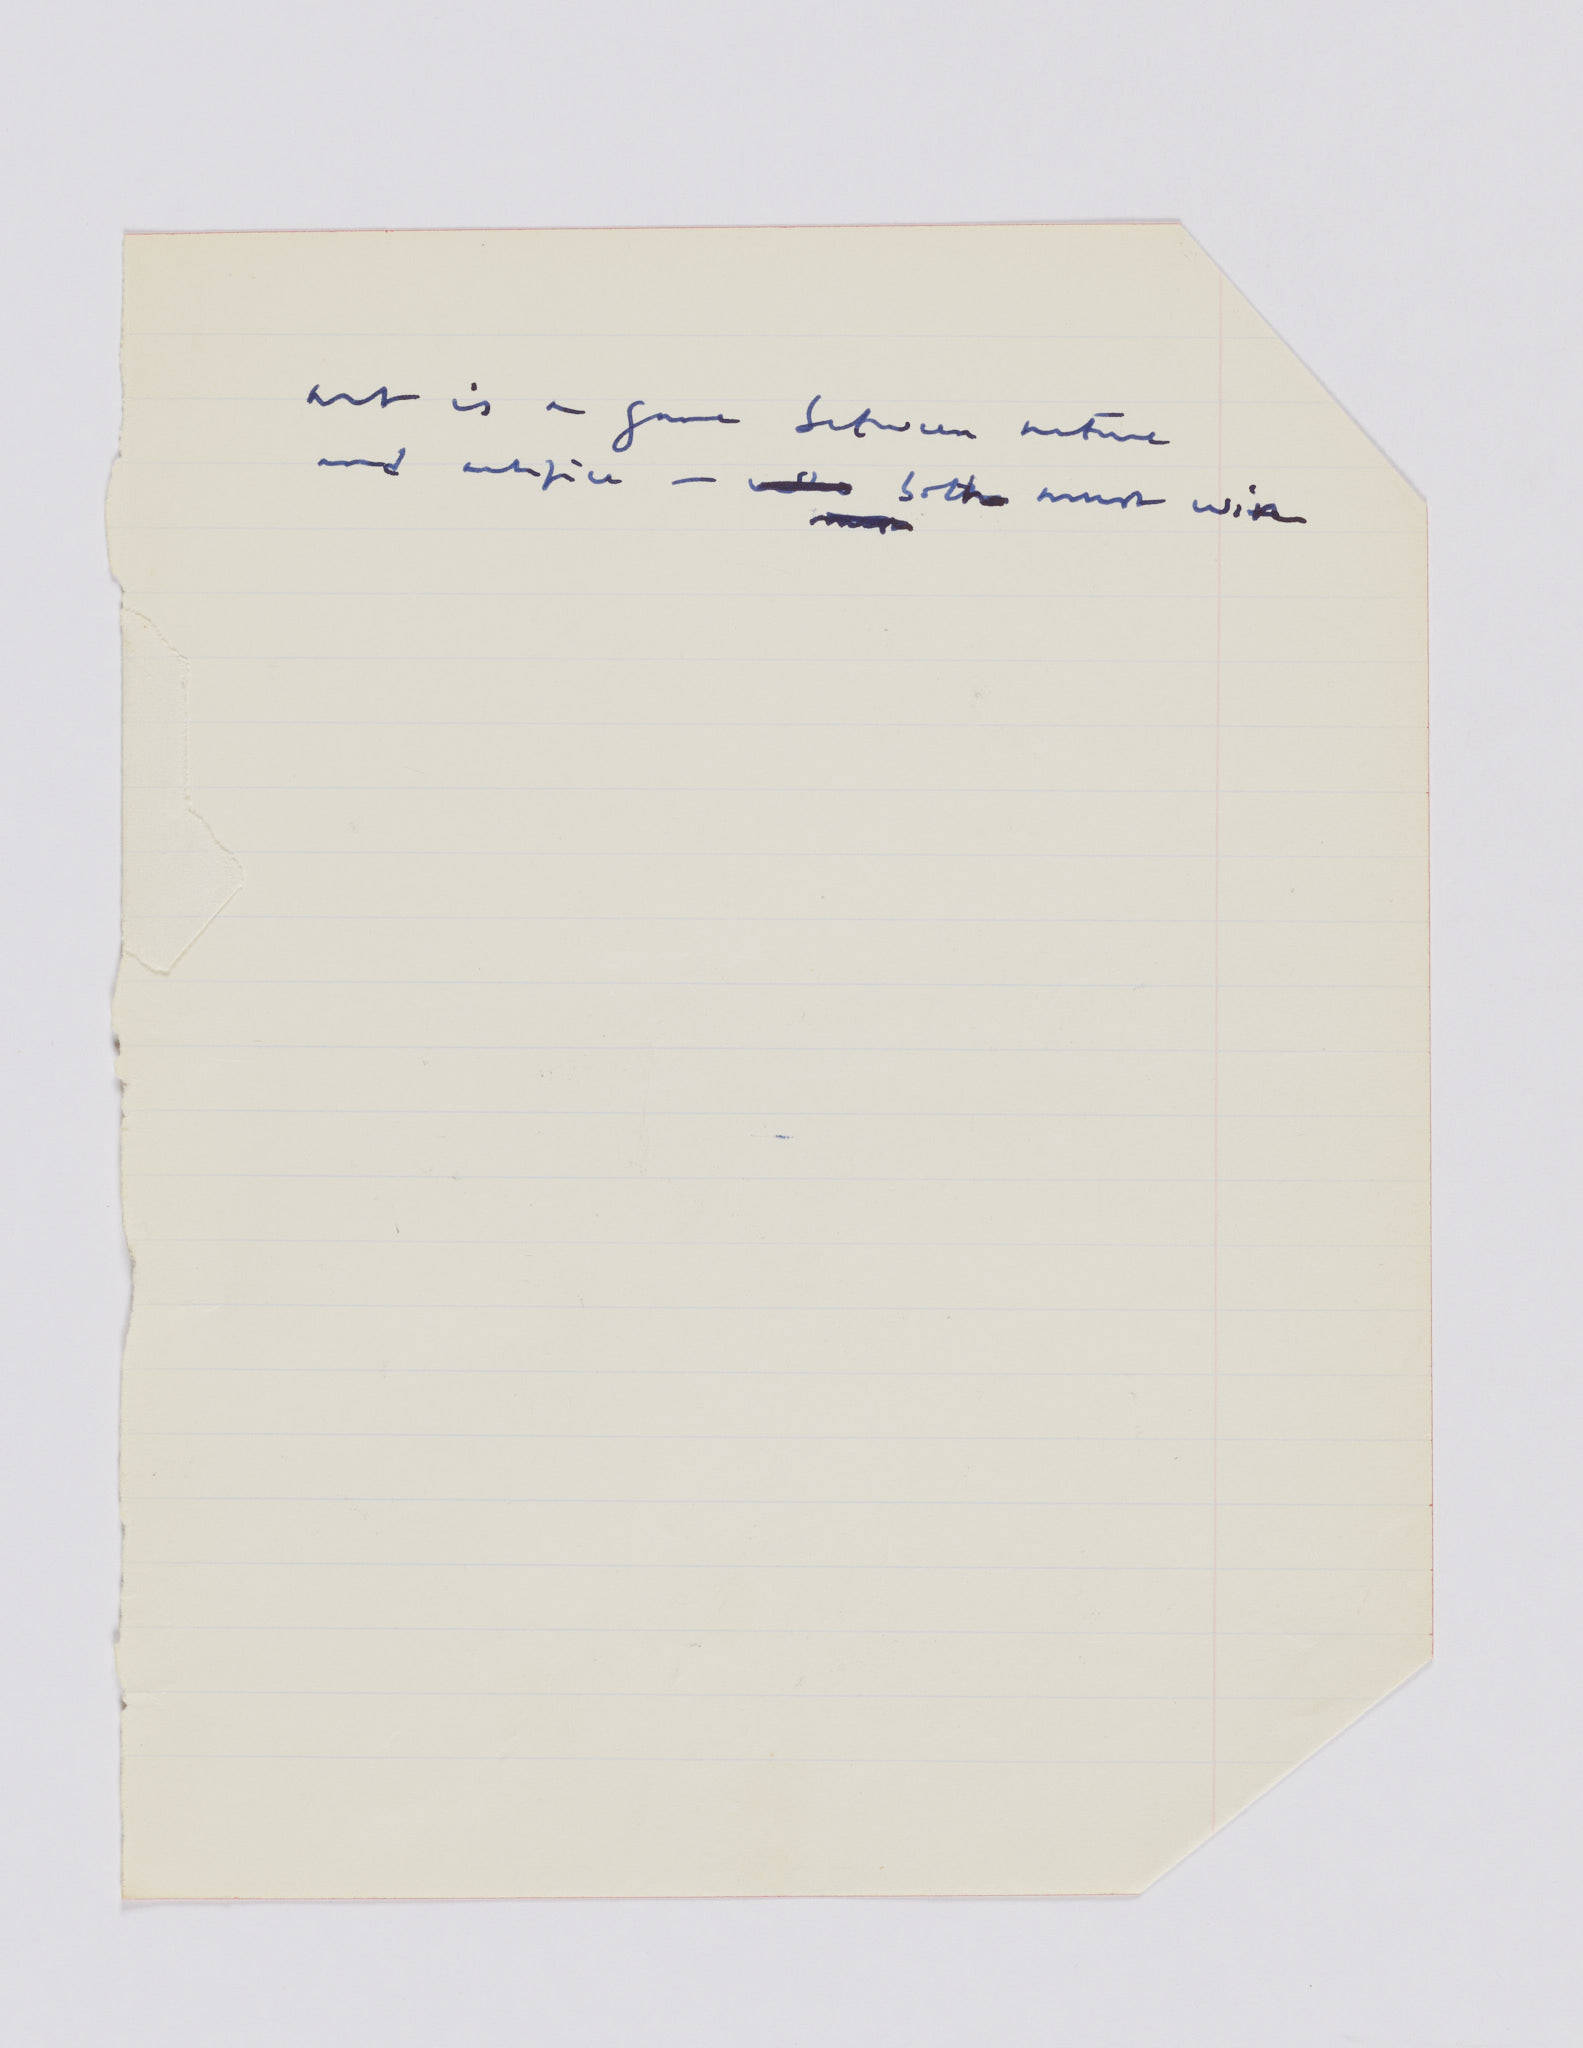 art is a game between nature
and artifice — both must win